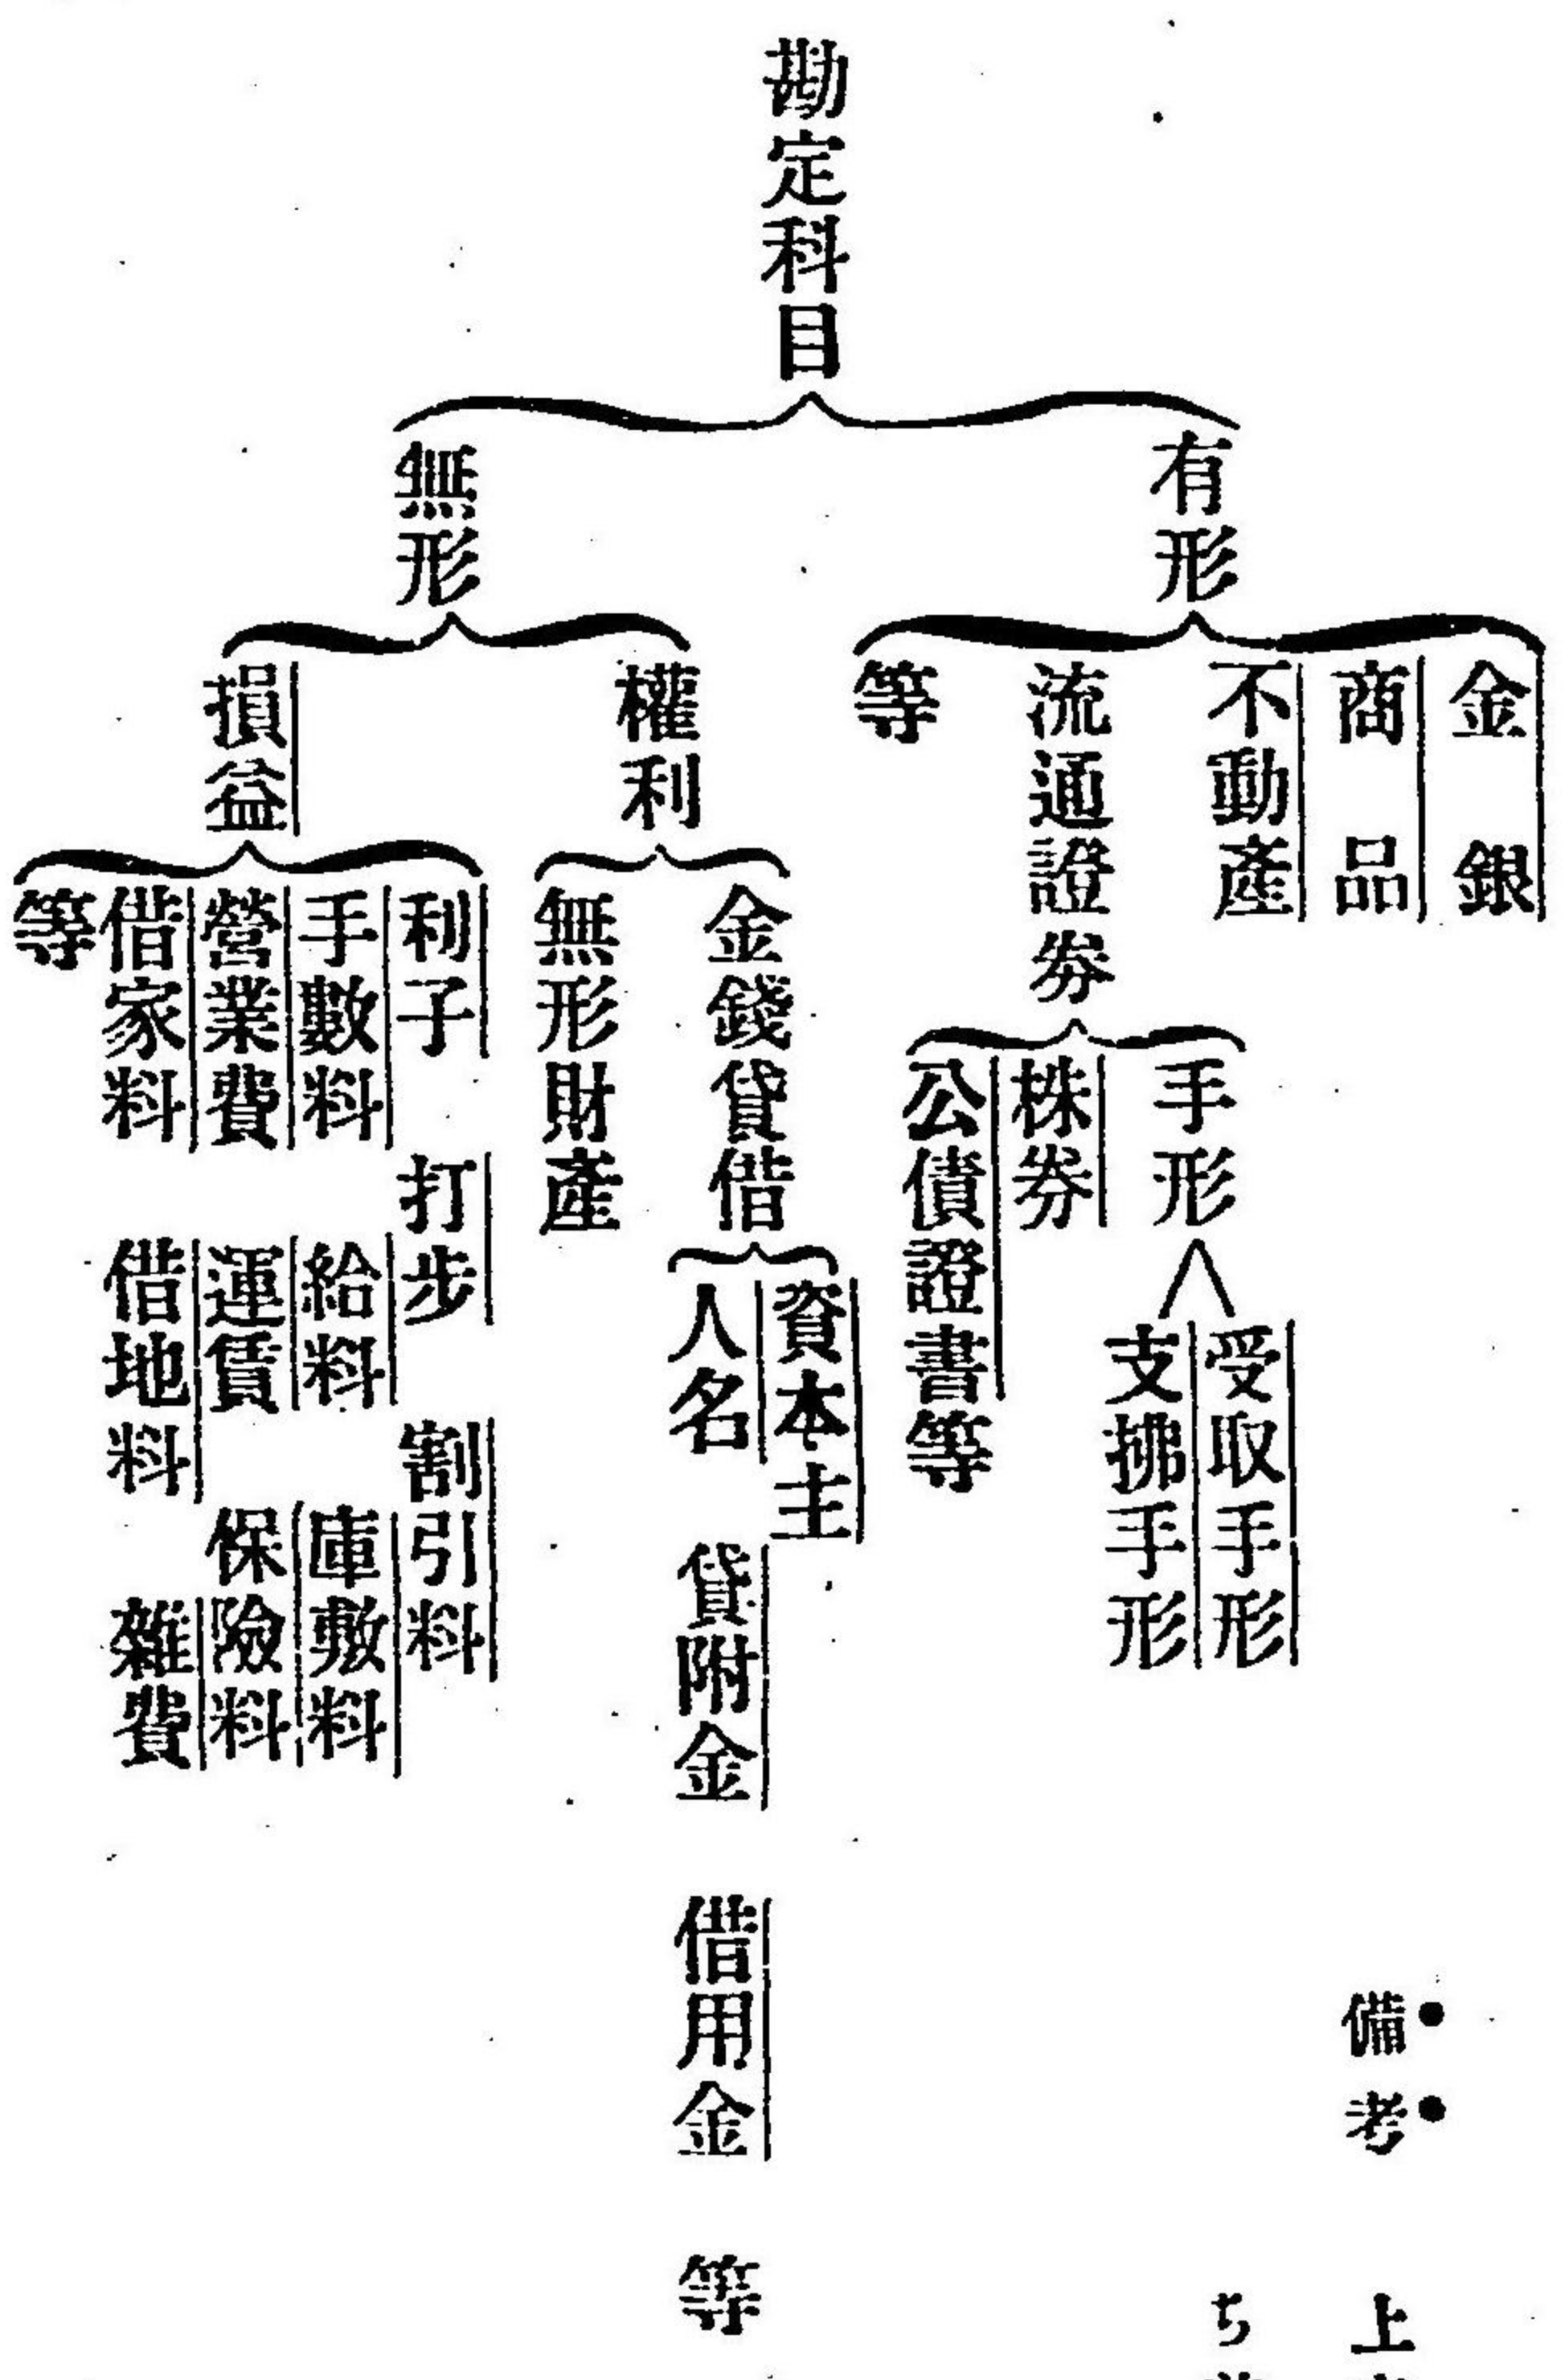 勘定科目
有形
金銀
商品
不動產
流通證券
手形
受取手形
支拂手形
株券
公債證書等
等
無形
權利
金錢貸借
資本主
人名 貸附金 借用金 等
無形財產
損益
利子 打步 割引料
手數料 給料 庫敷料
營業費 運賃 保險料
借家料 借地料 雜費
等
備考 上
ち